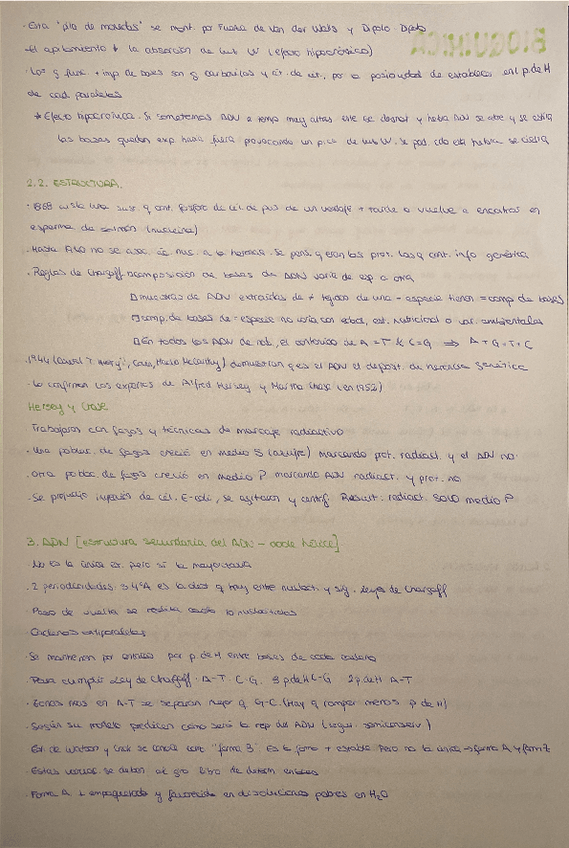 · Esta "pila de monedas" se mant. por Fuerza de Van der Waals y Dipolo Dipolo
· El apilamiento ↓ la absorción de luz UV (efecto hipocrómico)
· Los g. func. + imp de bases son g carbonilos y át. de nit., por la posibilidad de establecer enl p de H
de cad. paralelas
* Efecto hipocrómico. Si sometemos ADN a temp muy altas este se desnat y
las bases quedan exp hacia fuera provocando un pico de luz UV.
2.2. ESTRUCTURA.
· 1868 aisla una sust. q cont. fósforo de cél. de pus de un vendaje + tarde la vuelve a encontrar en
esperma de salmón (nucleína)
· Hasta 1940 no se asoc. ác nuc. a la herencia. Se pens. q eran las prot. las q cont. info genética
· Reglas de Chargaff: composición de bases de ADN varía de esp a otra
muestras de ADN extraídas de ≠ tejidos de una = especie tienen = comp de bases
comp. de bases de = especie no varía con edad, est. nutricional o var. ambientales
En todos los ADN de nat., el contenido de A = T y C = G ⇒ A + G = T + C
· 1944 demuestran q es el ADN el deposit. de herencia genética
· Lo confirman los experim. de Alfred Hersey y Martha Chase (en 1952)
Hersey y Chase
Trabajaron con fagos y técnicas de marcaje radiactivo
· Una poblac. de fagos creció en medio S (azufre) marcando prot. radiact. y el ADN no
· Otra poblac. de fagos creció en medio P. marcando ADN radiact. y prot. no
· Se produjo infección de cél. E-coli, se agitaron y centrif. Result. radiact. SOLO medio P
3. ADN [estructura secundaria del ADN - doble hélice]
· No es la única est. pero si la mayoritaria
· 2 periodicidades. 3'4Å es la dist q hay entre nucleót. y sig. leyes de Chargaff
· Paso de vuelta se realiza cada 10 nucleótidos
· Cadenas antiparalelas
· Se mantienen por enlaces por p. de H entre bases de cada cadena
· Para cumplir Ley de Chargaff. A-T C-G. 3 p. de H C-G 2 p. de H A-T
· Zonas ricas en A-T se separan mejor q G-C. (Hay q romper menos p. de H)
· Según su modelo predicen como sería la rep. del ADN (según. semiconserv.)
· Est de Watson y Crick se conoce como "forma B". Es la forma + estable. Pero no la única → forma A y forma Z
· Estas variac. se deben al giro libre de determ enlaces
· Forma A ↓ empaquetada y favorecida en disoluciones pobres en H₂O